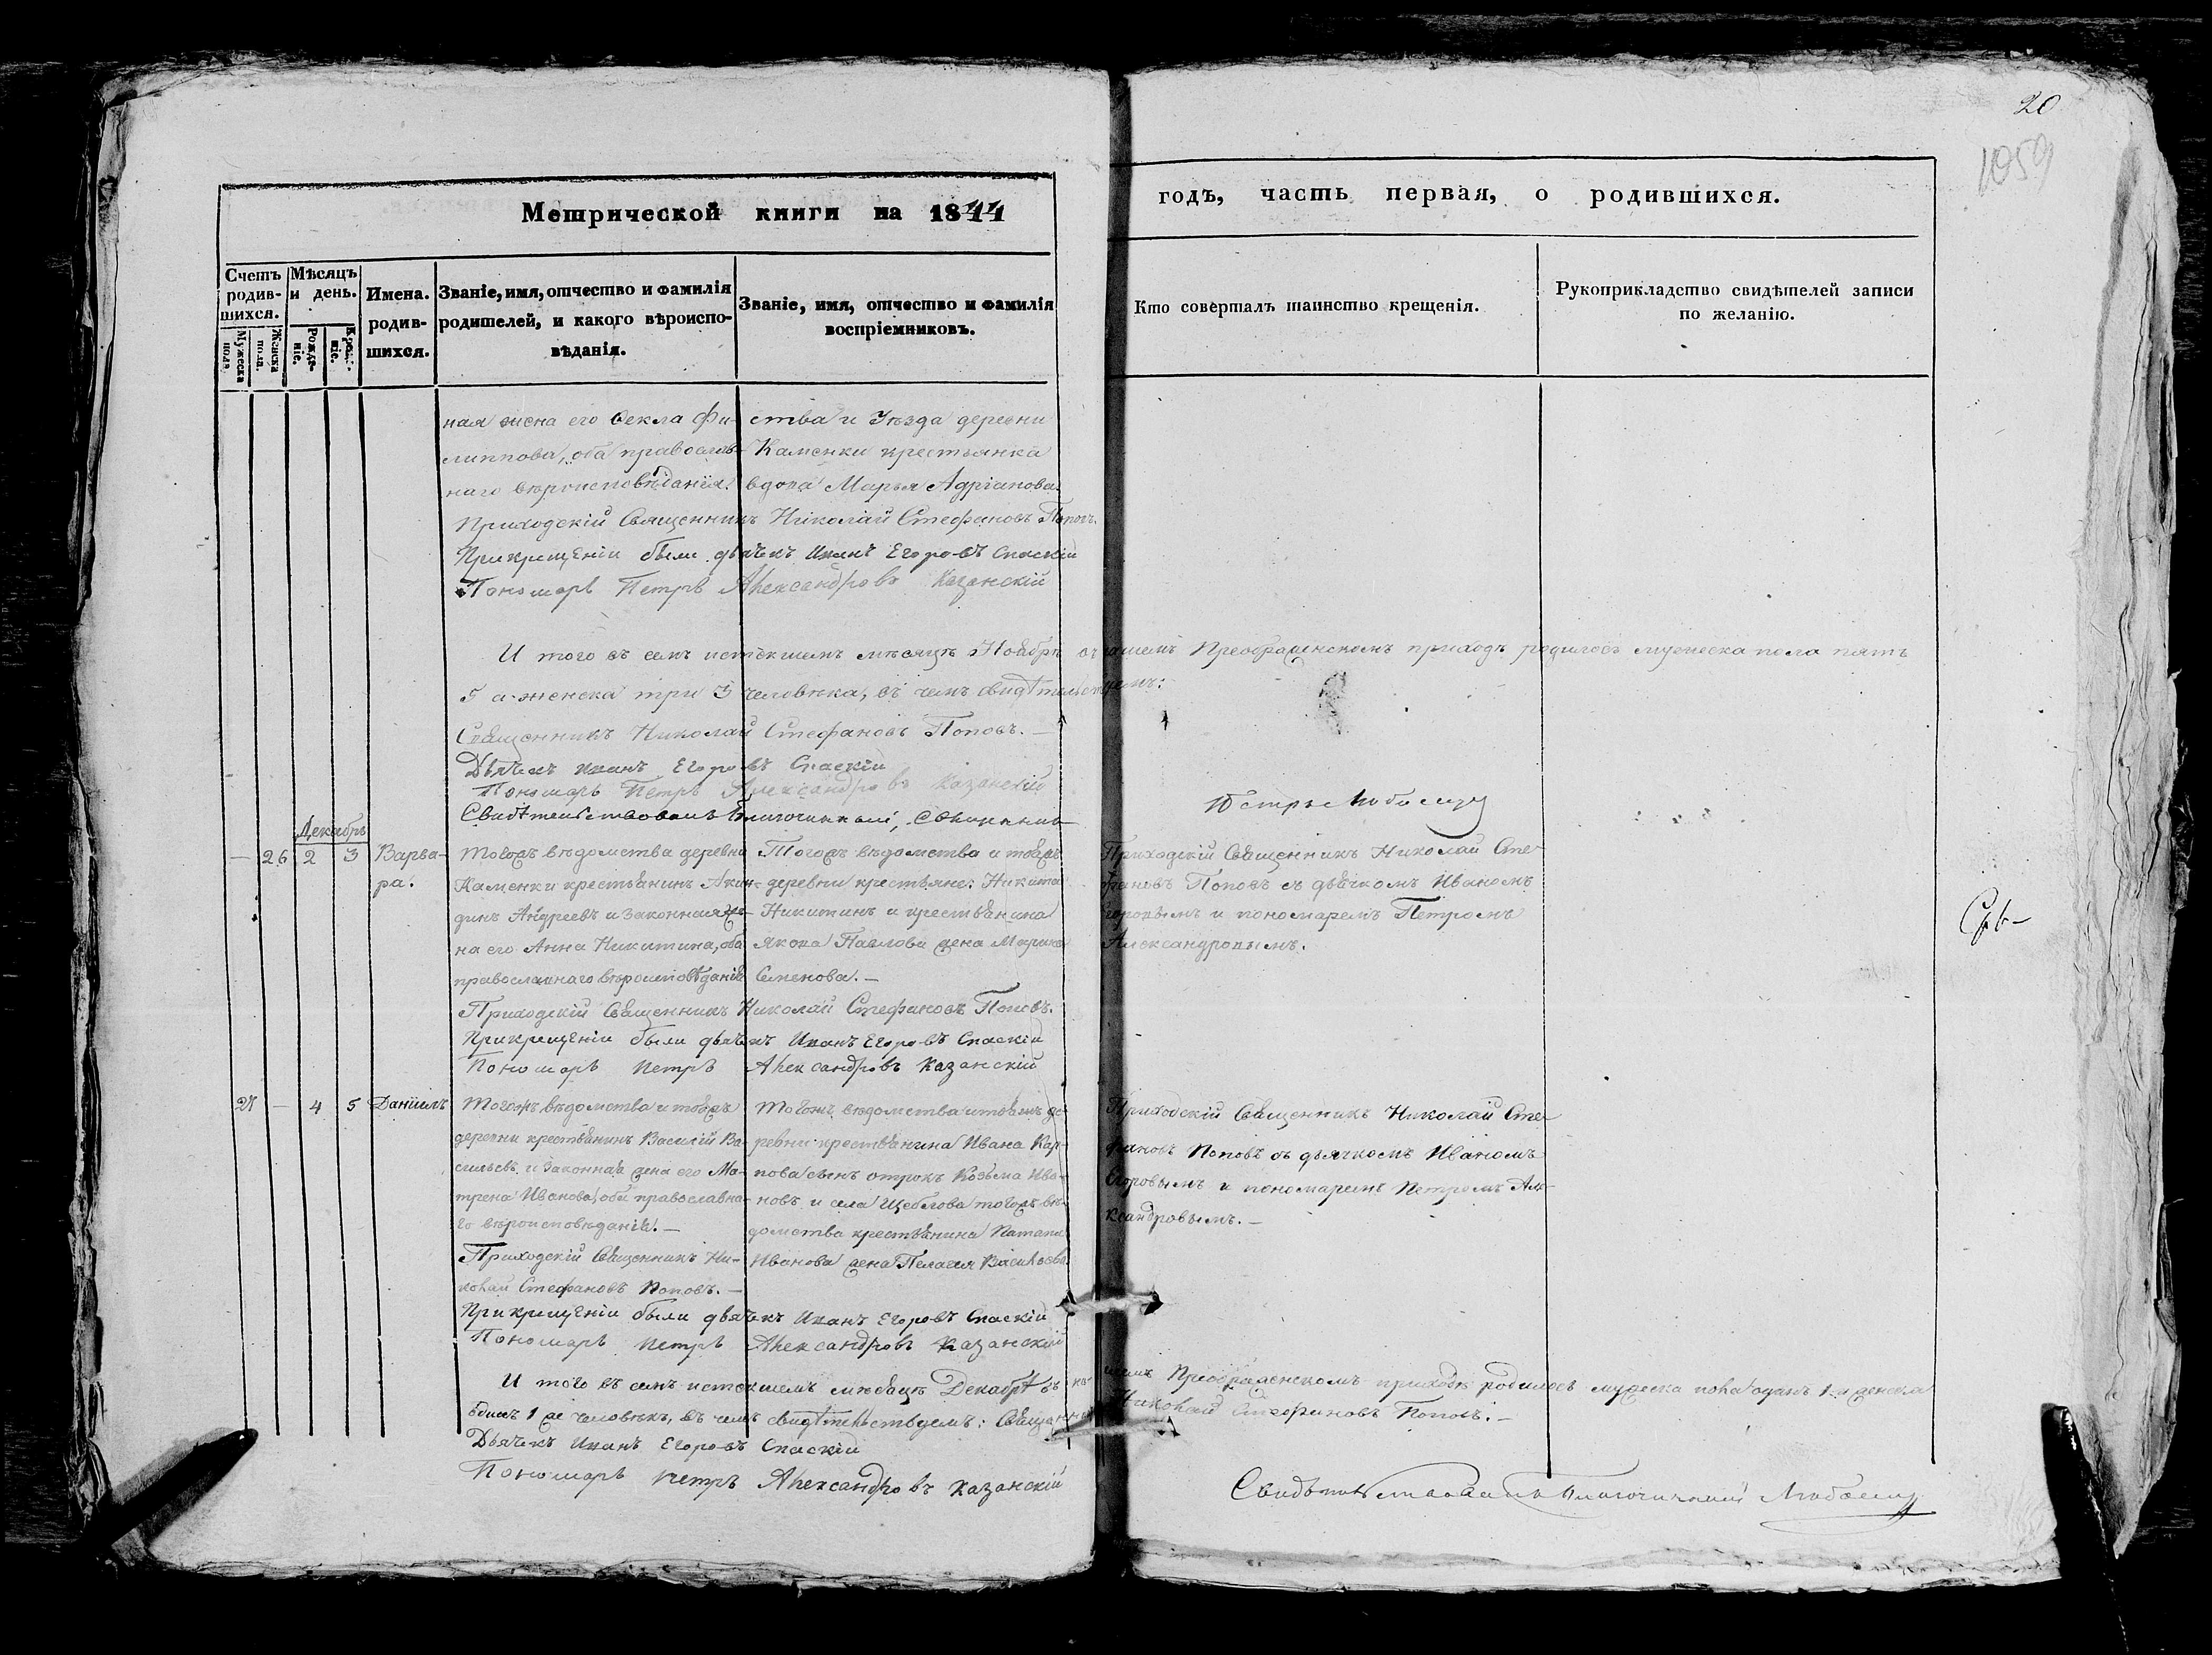 20
1059
Метрической книги на 1844
годъ, часть первая, о родившихся.
Счетъ родив-
шихся.
Мужеска пола.
Женска пола.
Мѣсяцъ
и день.
Рожде-
ніе.
Креще-
ніе.
Имена.
родив-
шихся.
Званіе, имя, отчество и фамилія
родителей, и какого вѣроиспо-
вѣданія.
Званіе, имя, отчество и фамилія
воспріемниковъ.
Кто совершалъ таинство крещенія.
Рукоприкладство свидѣтелей записи
по желанію.
ная жена его Ѳекла Фи-
липпова, оба православ-
наго вѣроисповѣданія.
ства и Уѣзда деревни
Каменки крестьянка
вдова Марья Адріанова.
Приходскій Священникъ Николай Стефановъ Поповъ.
При крещеніи были дьячекъ Иванъ Егоровъ Спаскій
Пономарь Петръ Александровъ Казанскій
И того въ семъ истекшемъ мѣсяцѣ Ноябрѣ въ нашемъ Преображенскомъ приходѣ родилось мужеска пола пять
5 а женска три 3 человѣка, въ чемъ свидѣтельствуемъ:
Священникъ Николай Стефановъ Поповъ.
Дьячекъ Иванъ Егоровъ Спаскій
Пономарь Петръ Александровъ Казанскій
Свидѣтельствовалъ Благочинный, Священникъ
Декабрь
— 26 2 3
Варва-
ра.
Тогожъ вѣдомства деревни
Каменки крестьянинъ Акин-
динъ Андреевъ и законная же-
на его Анна Никитина, оба
православнаго вѣроисповѣданія
Тогожъ вѣдомства и тойжъ
деревни крестьяне: Никита
Никитинъ и крестьянина
Якова Павлова жена Марина
Семенова. —
Приходскій Священникъ Николай Сте-
фановъ Поповъ съ дьячкомъ Иваномъ
Егоровымъ и пономаремъ Петромъ
Александровымъ.
Приходскій Священникъ Николай Стефановъ Поповъ.
При крещеніи были дьячекъ Иванъ Егоровъ Спаскій
Пономарь Петръ Александровъ Казанскій
27 — 4 5
Даніилъ
Тогожъ вѣдомства и тойжъ
деревни крестьянинъ Василій Ва-
сильевъ и законная жена его Ма-
трена Иванова, оба православна-
го вѣроисповѣданія. —
Приходскій Священникъ Ни-
колай Стефановъ Поповъ. —
Тогожъ вѣдомства и тойжъ де-
ревни крестьянина Ивана Кар-
пова сынъ отрокъ Козьма Ива-
новъ и села Щеблова тогожъ вѣ-
домства крестьянина Потапа
Иванова жена Пелагея Васильева
Приходскій Священникъ Николай Сте-
фановъ Поповъ съ дьячкомъ Иваномъ
Егоровымъ и пономаремъ Петромъ Але-
ксандровымъ. —
При крещеніи были дьячекъ Иванъ Егоровъ Спаскій
Пономарь Петръ Александровъ Казанскій
И того въ семъ истекшемъ мѣсяцѣ Декабрѣ въ нашемъ Преображенскомъ приходѣ родилось мужеска пола одинъ 1 а женска
одинъ 1 же человѣкъ, въ чемъ свидѣтельствуемъ: Священникъ Николай Стефановъ Поповъ. —
Дьячекъ Иванъ Егоровъ Спаскій
Пономарь Петръ Александровъ Казанскій
Свидѣтельствовалъ Благочинный